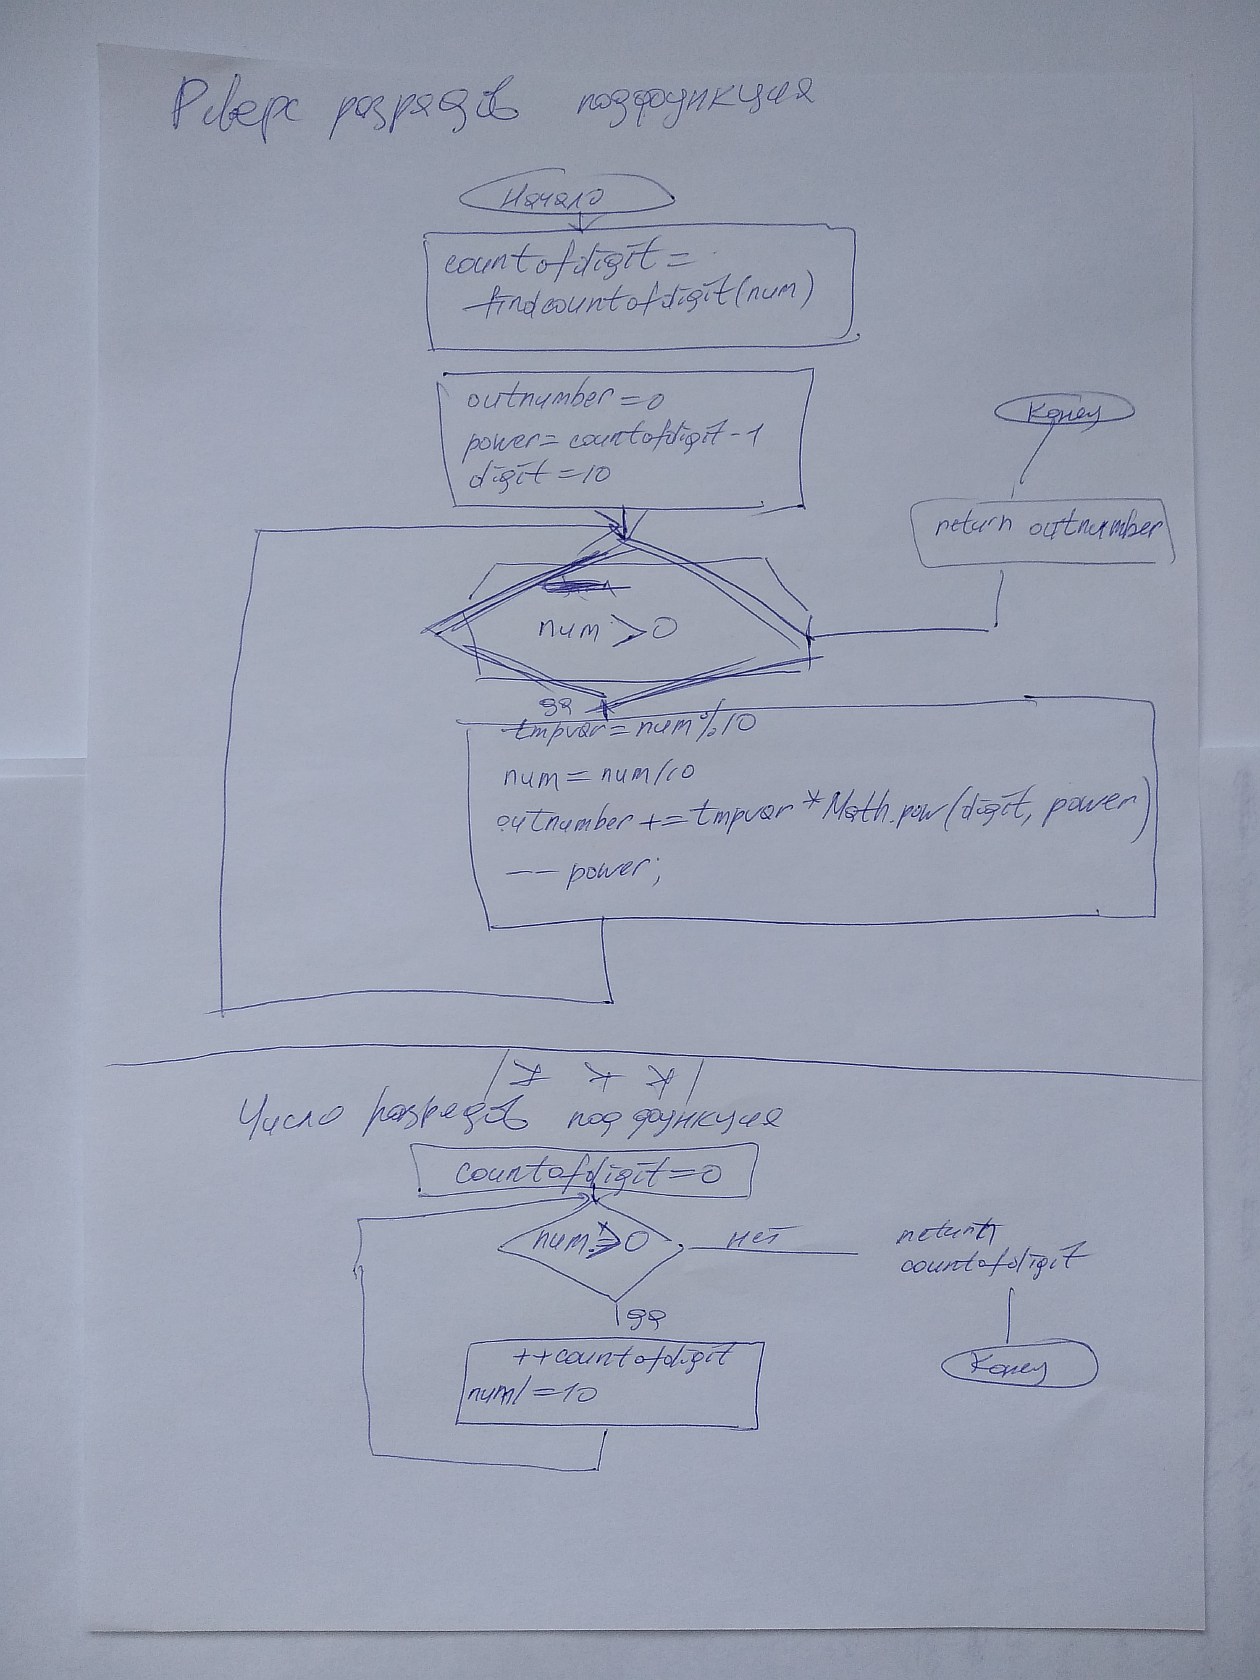 Риверс разрядов подфункция
Начало
countofdigit =
findcountofdigit(num)
outnumber = 0
power = countofdigit - 1
digit = 10
Конец
return outnumber
num > 0
да
tmpvar = num % 10
num = num/10
outnumber += tmpvar * Math.pow(digit, power)
-- power;
* * *
Число разрядов подфункция
countofdigit = 0
num 0
нет
return
countofdigit
да
++countofdigit
num/=10
Конец